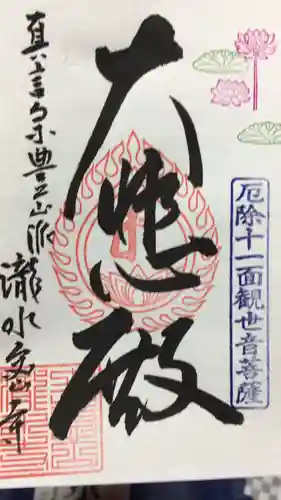 厄除十一面観世音菩薩
大悲殿
真言宗豊山派
瀧水密寺